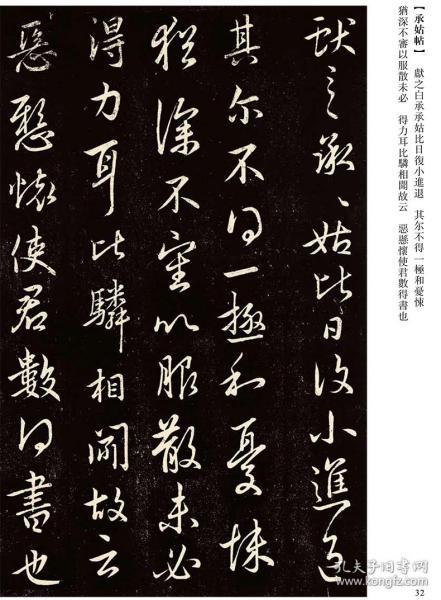 【承姑帖】　獻之白承承姑比日復小進退　其尔不得一極和憂悚
猶深不審以服散未必　得力耳比驎相聞故云　惡懸懷使君數得書也
献之承〻姑比日復小進退
其尔不得一極和憂悚
猶深不審以服散未必
得力耳比驎相聞故云
惡懸懷使君數得書也
孔夫子旧书网
32